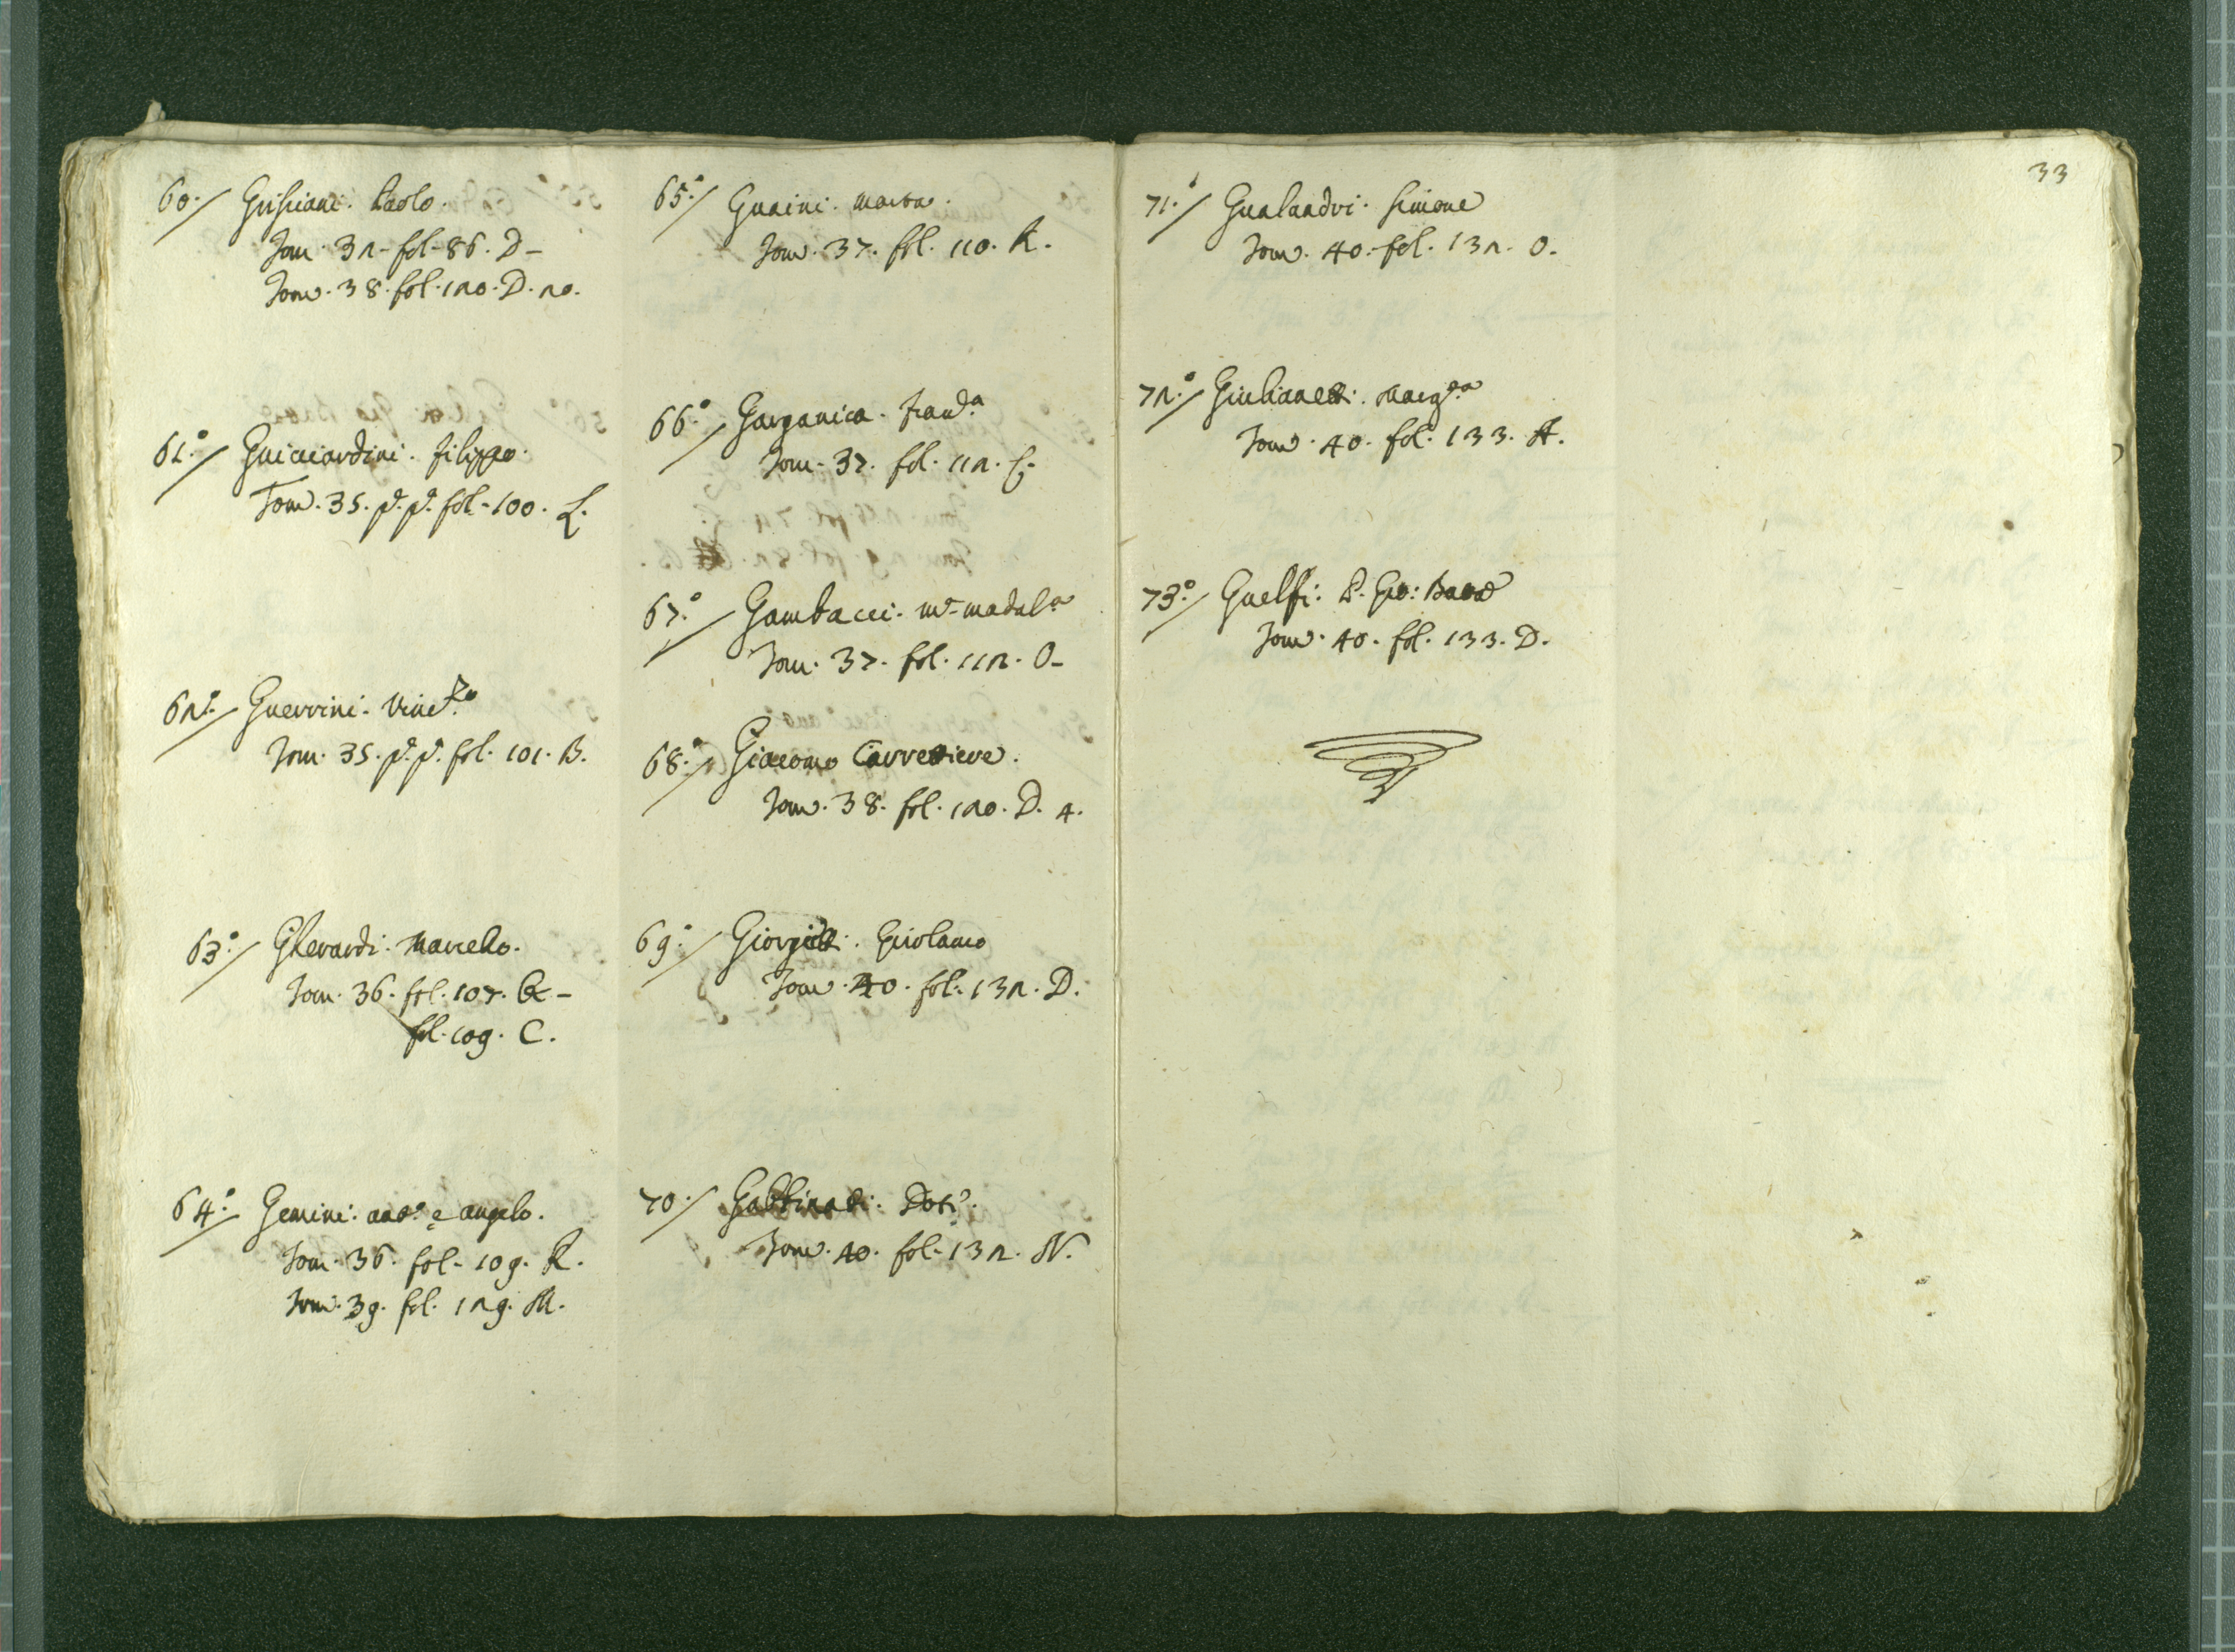 60./ Grisciani. Paolo.
Tom. 32- fol-86. D-
Tom. 38. fol. 120. D. 20.
61.°/ Guicciardini. filippo.
Tom. 35. p. p. fol-100. L.
62.°/ Guerrini. Vincᶻᵒ
Tom. 35. p. p. fol. 101. B.
63.°/ Gherardi. Marcello.
Tom. 36. fol. 107. Q-
fol. 109. C.
64.°/ Gemini. antᵒ. e angelo.
Tom. 36. fol- 109. R.
Tom. 39. fol. 129. M.
65.°/ Guaini. marta.
Tom. 37. fol. 110. R.
66.°/ Garganica. francᵃ
Tom. 37. fol. 112. G.
67.°/ Gambacci. mᵃ madalᵃ
Tom. 37. fol. 112. O-
68.°/ Giacomo Carrettiere.
Tom. 38. fol. 120. D. 4.
69.°/ Giorgietti. Girolamo
Tom. 40. fol. 132. D.
70./ Gabbinati. Dotᵉ.
Tom. 40. fol-132. N.
33
71.°/ Gualandri. Simone
Tom. 40. fol. 132. O.
72.°/ Giulianetti. Margᵗᵃ
Tom. 40. fol. 133. A.
73.°/ Guelfi. P. Gio: Batta
Tom. 40. fol. 133. D.